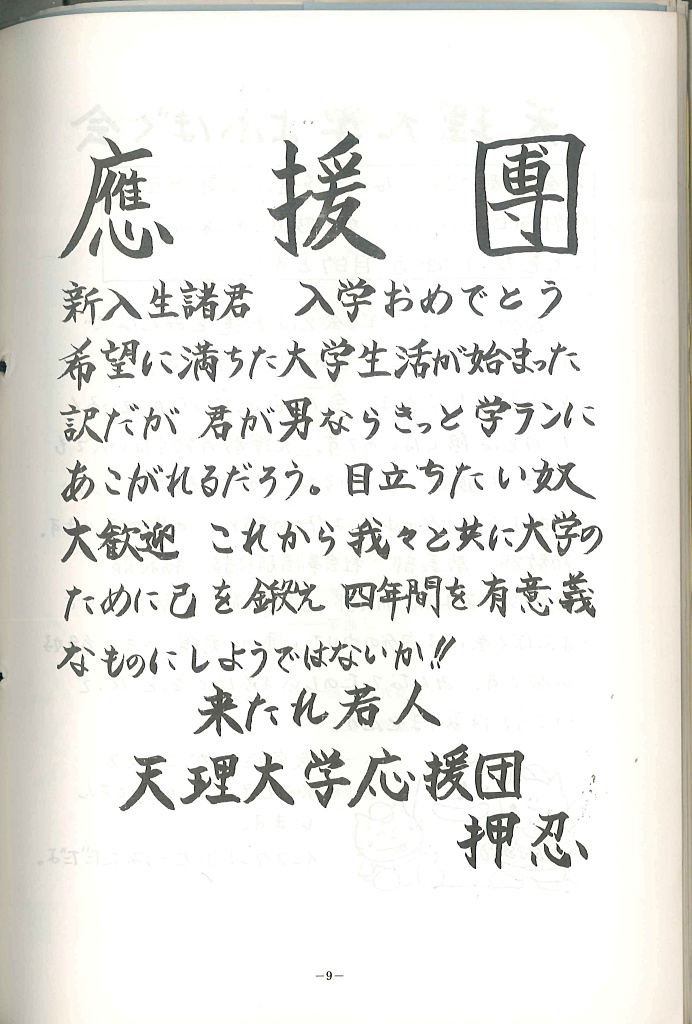 應援團
新入生諸君　入学おめでとう
希望に満ちた大学生活が始まった
訳だが 君が男ならきっと学ランに
あこがれるだろう。目立ちたい奴
大歓迎 これから我々と共に大学の
ために己を鍛え 四年間を有意義
なものにしようではないか!!
来たれ若人
天理大学応援団
押忍
—9—